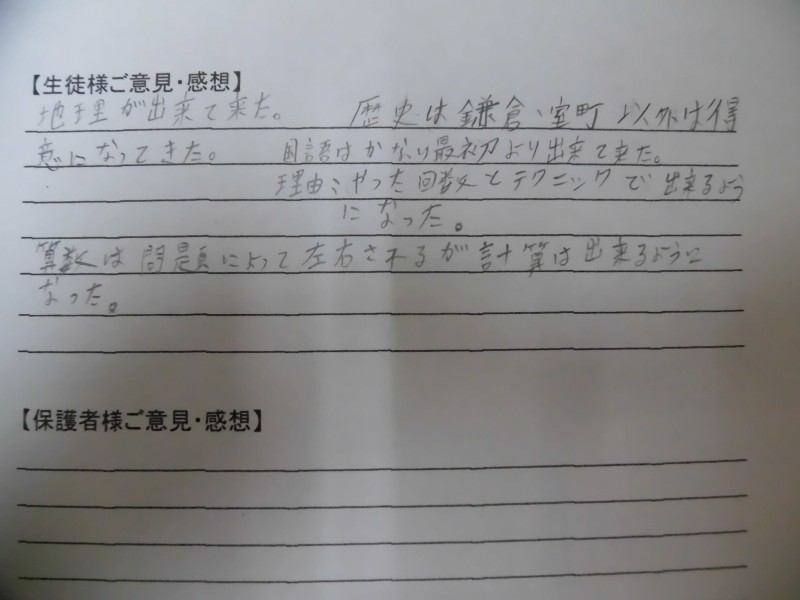 【生徒様ご意見・感想】
地理が出来て来た。 歴史は鎌倉、室町以外は得
意になってきた。 国語はかなり最初より出来て来た。
理由：やった回数とテクニックで出来るよう
になった。
算数は問題によって左右されるが計算は出来るように
なった。
【保護者様ご意見・感想】